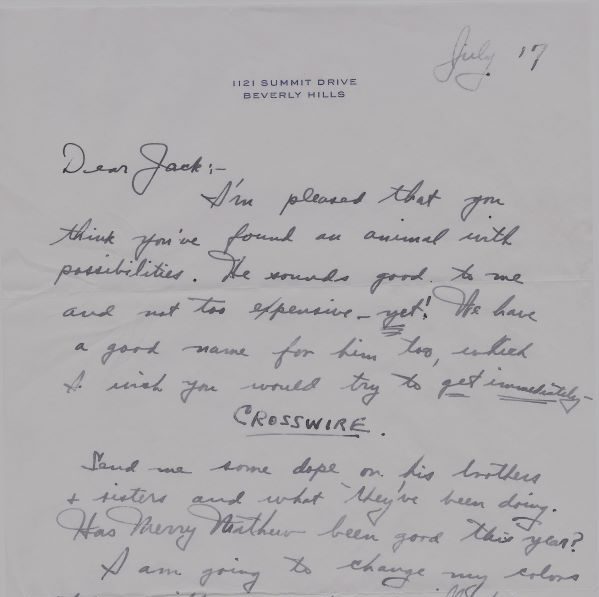 July 17
1121 SUMMIT DRIVE
BEVERLY HILLS
Dear Jack:-
I'm pleased that you
think you've found an animal with
possibilities. He sounds good to me
and not too expensive - yet! We have
a good name for him too, which
I wish you would try to get immediately -
CROSSWIRE.
Send me some dope on his brothers
& sisters and what they've been doing.
Has Merry Mathew been good this year?
I am going to change my colors